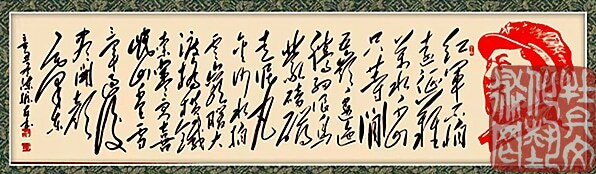 红军不怕
远征难
万水千山
只等闲
五岭逶迤
腾细浪乌
蒙磅礴
走泥丸
金沙水拍
云崖暖大
渡桥横铁
索寒更喜
岷山千里雪
三军过后
尽开颜
毛泽东